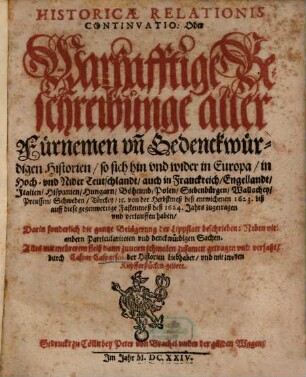 HISTORICÆ RELATIONIS
CONTINVATIO: Oder
Warhafftige Be
schreibunge aller
Fürnemen vñ Gedenckwür-
digen Historien / so sich hin vnd wider in Europa / in
Hoch- vnd Nider Teutschlandt / auch in Franckreich / Engellandt /
Italien / Hispanien / Hungarn / Böhemb / Polen / Siebenbürgen / Wallachey /
Preussen / Schweden / Türckey / ec. von der Herbstmeß deß entwichenen 1623. biß
auff diese gegenwertige Fastenmeß deß 1624. Jahrs zugetragen
vnd verlauffen haben /
Darin sonderlich die gantze Belägerung der Lippstatt beschrieben: Neben vielen
andern Particulariteten vnd denckwürdigen Sachen.
Alles mit
zusamen getragen vnd verfasset /
durch der Historien liebhaber / vnd mit
Kupfferstücken geziert.
Gedruckt zu Cölln bey Peter von Brachel vnder der gülden Wagen /
Im Jahr M. DC. XXIV.